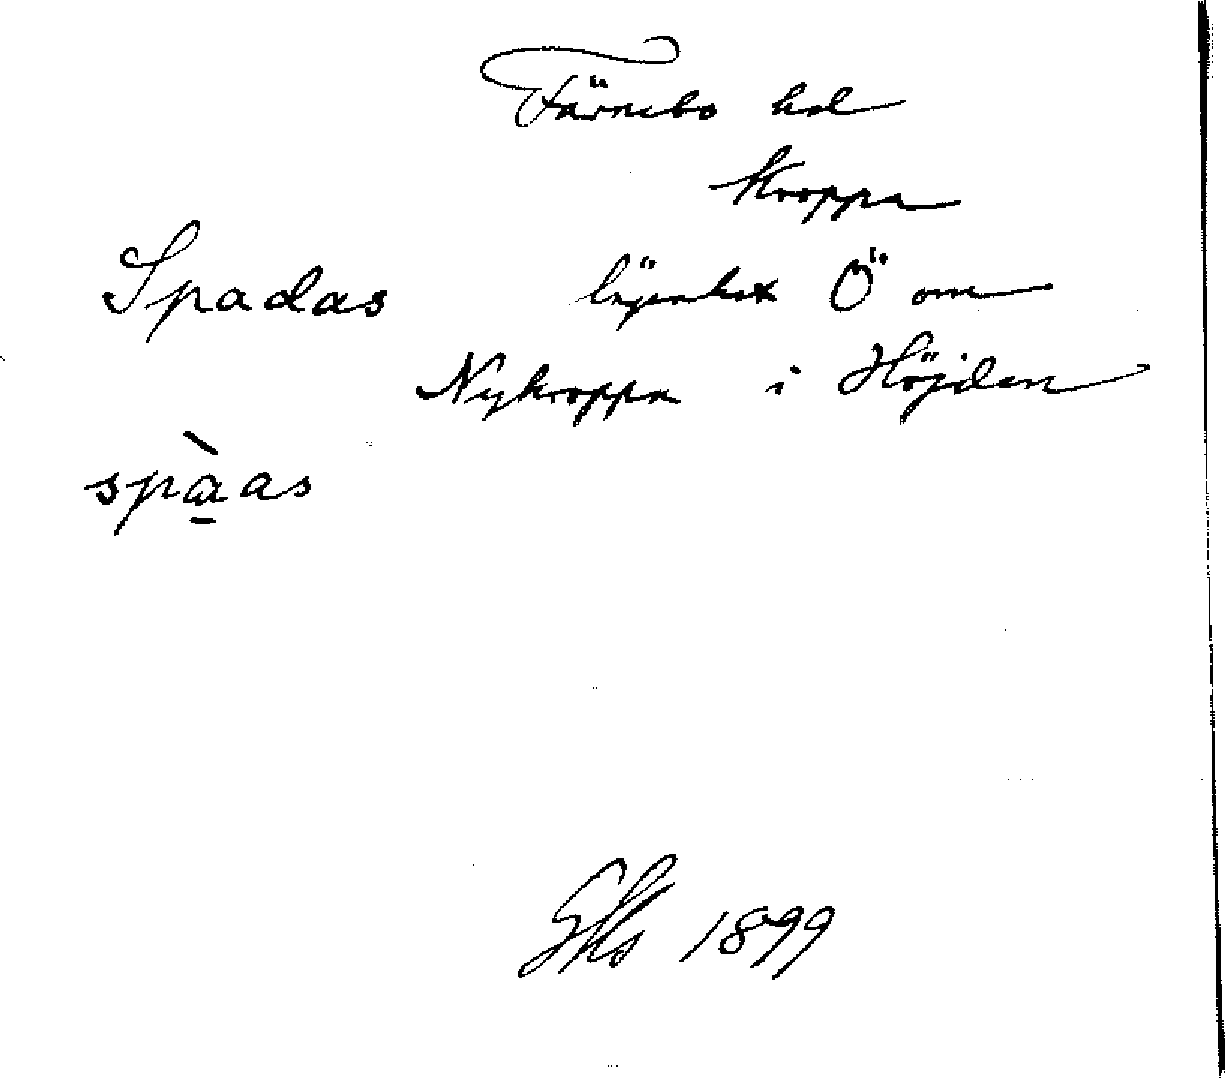 Färnebo hd
Kroppa
Spadas lägenhet Ö om
Nykroppa i Höjden
spàas
1899